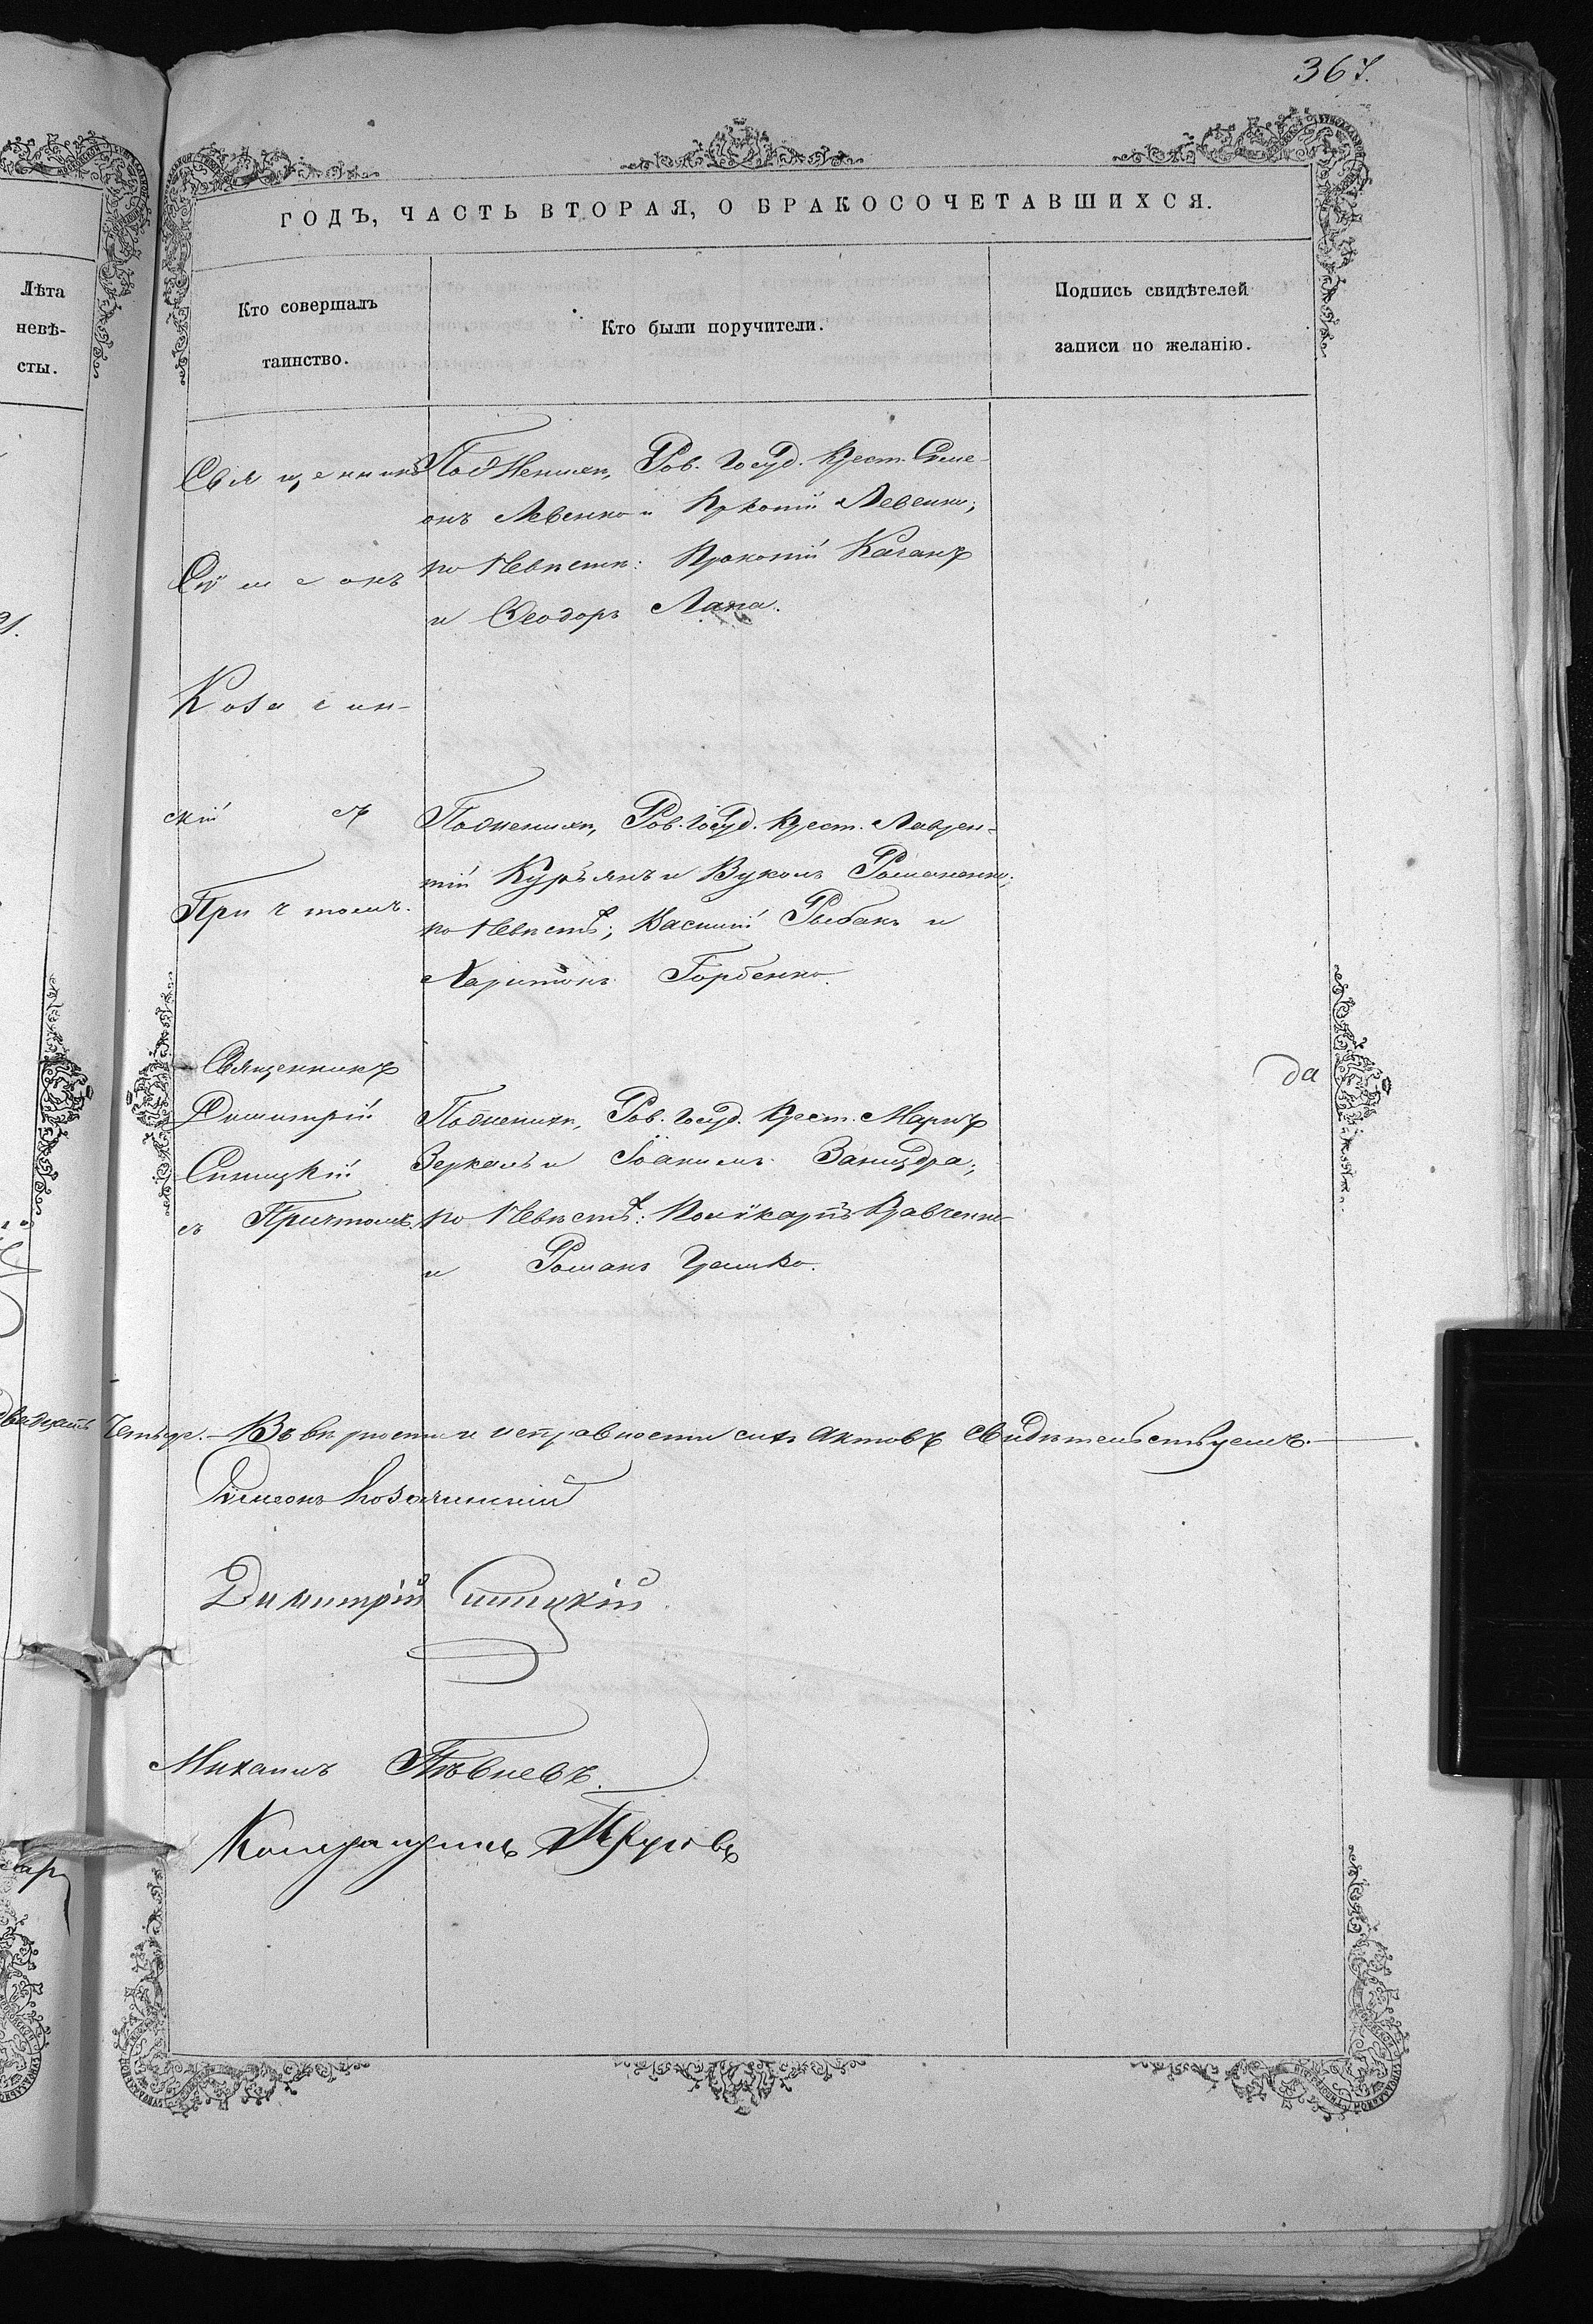 367.
ГОДЪ, ЧАСТЬ ВТОРАЯ, О БРАКОСОЧЕТАВШИХСЯ.
Лѣта
невѣ-
сты.
Кто совершалъ
таинство.
Кто были поручители.
Подпись свидѣтелей
записи по желанію.
Священникъ
Сѵмеонъ
Козачин-
скій съ
Причтомъ.
По Женихѣ, Ров. Госуд. Крест. Симе-
онъ Левенко и Прокопій Левенко;
по Невѣстѣ: Прокопій Качанъ
и Ѳеодоръ Лапа.
По Женихѣ, Ров. Госуд. Крест. Лаврен-
тій Курьянъ и Вуколъ Романенко;
по Невѣстѣ; Василій Рыбакъ и
Харитонъ Горбенко.
Священникъ
Димитрій
Синицкій
съ Причтомъ.
По Женихѣ, Ров. Госуд. Крест. Марко
Зеркаль и Іоакимъ
по Невѣстѣ: Поликарпъ Кравченко
и Романъ
да
двадцать Четыре. – Въ вѣрности и исправности сихъ актовъ свидѣтельствуемъ. –
Сѵмеонъ Козачинскій
Димитрій Синицкій
Михаилъ Пѣвневъ.